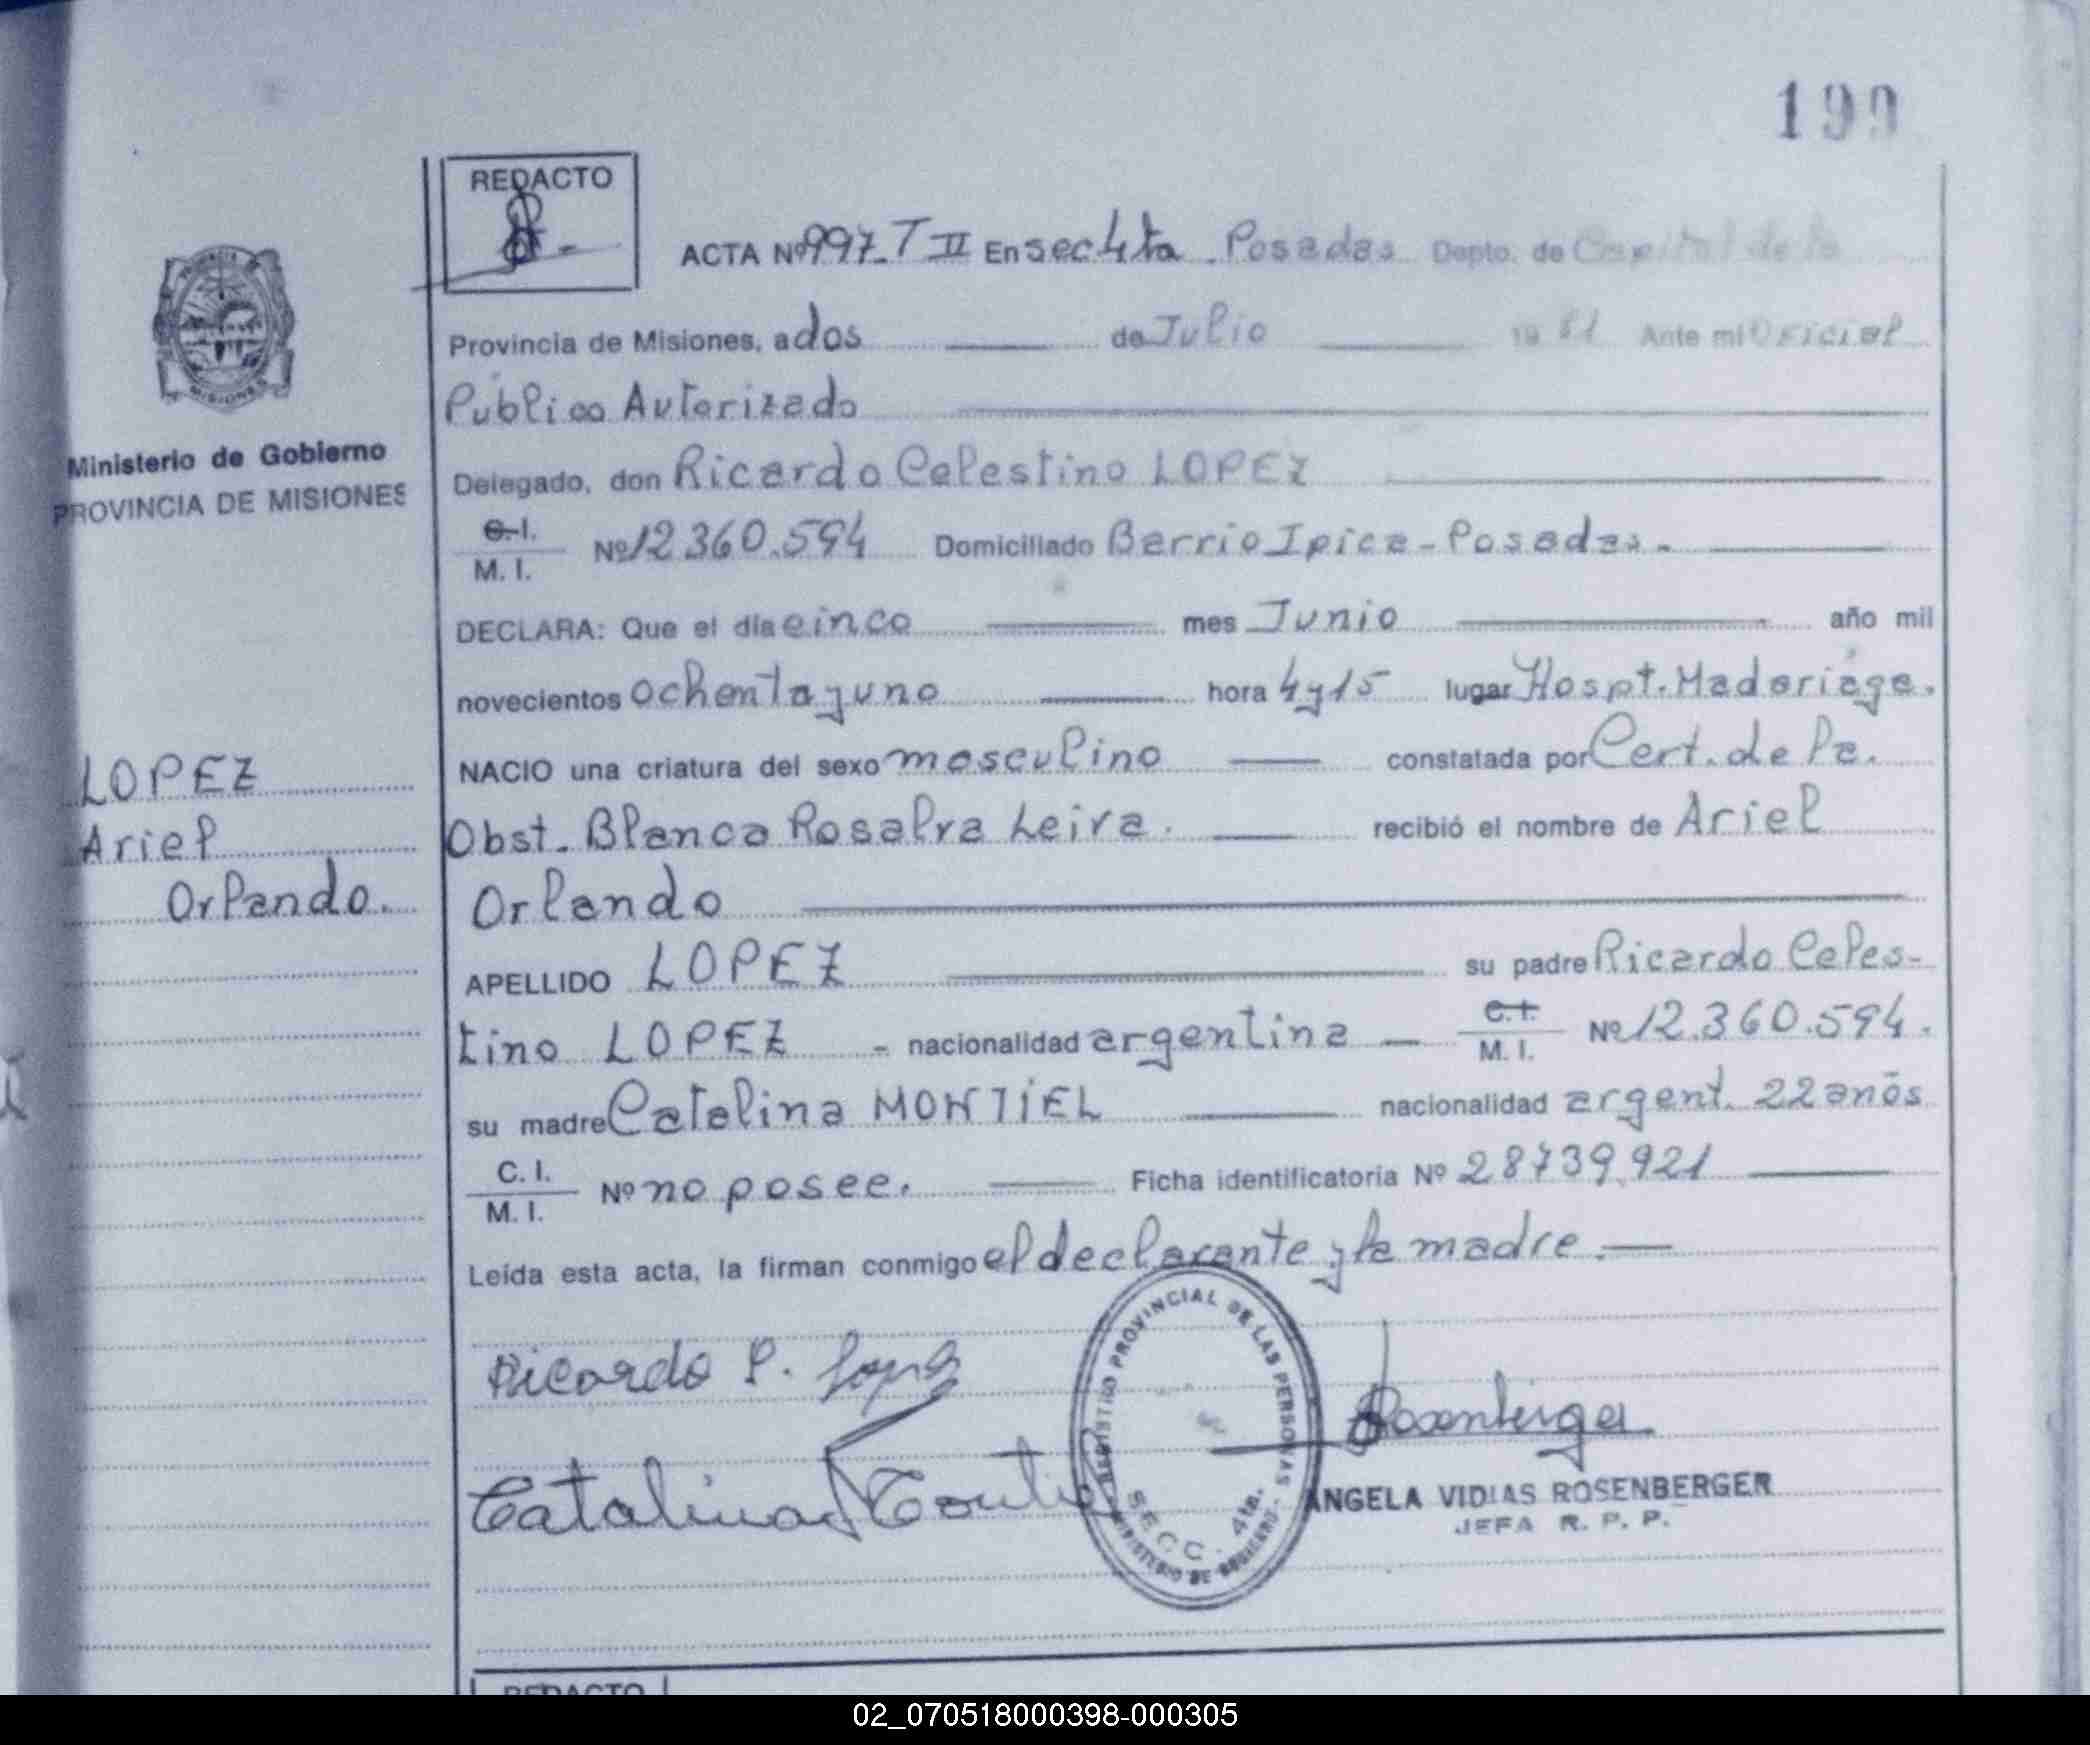 199
REDACTO
ACTA Nº 997 T II En sec 4ta Posadas Depto. de Capital de la
Provincia de Misiones, a dos de Julio 1981 Ante mi Oficial
Publico Autorizado
Delegado, don Ricardo Celestino LOPEZ
C.I. M.I. Nº 12360.594 Domiciliado Barrio Ipica - Posadas.
DECLARA: Que el día cinco mes Junio año mil
novecientos ochenta y uno hora 4 y 15 lugar Hospt. Madariaga.
NACIO una criatura del sexo masculino constatada por Cert. de la
Obst. Blanca Rosalva Leiva. recibió el nombre de Ariel
Orlando
APELLIDO LOPEZ su padre Ricardo Celes-
tino LOPEZ - nacionalidad argentina C.I. M.I. Nº 12.360.594.
su madre Catalina MONTIEL nacionalidad argent. 22 años
C.I. M.I. Nº no posee. Ficha identificatoria Nº 28739.921
Leída esta acta, la firman conmigo el declarante y la madre.
Ricardo C. Lopez
Catalina Monti
Rosenberger
ANGELA VIDIAS ROSENBERGER
JEFA R. P. P.
REGISTRO PROVINCIAL DE LAS PERSONAS
SECC. 4ta.
MINISTERIO DE GOBIERNO
PROVINCIA
MISIONES
Ministerio de Gobierno
PROVINCIA DE MISIONES
LOPEZ
Ariel
Orlando.
REDACTO
02_070518000398-000305